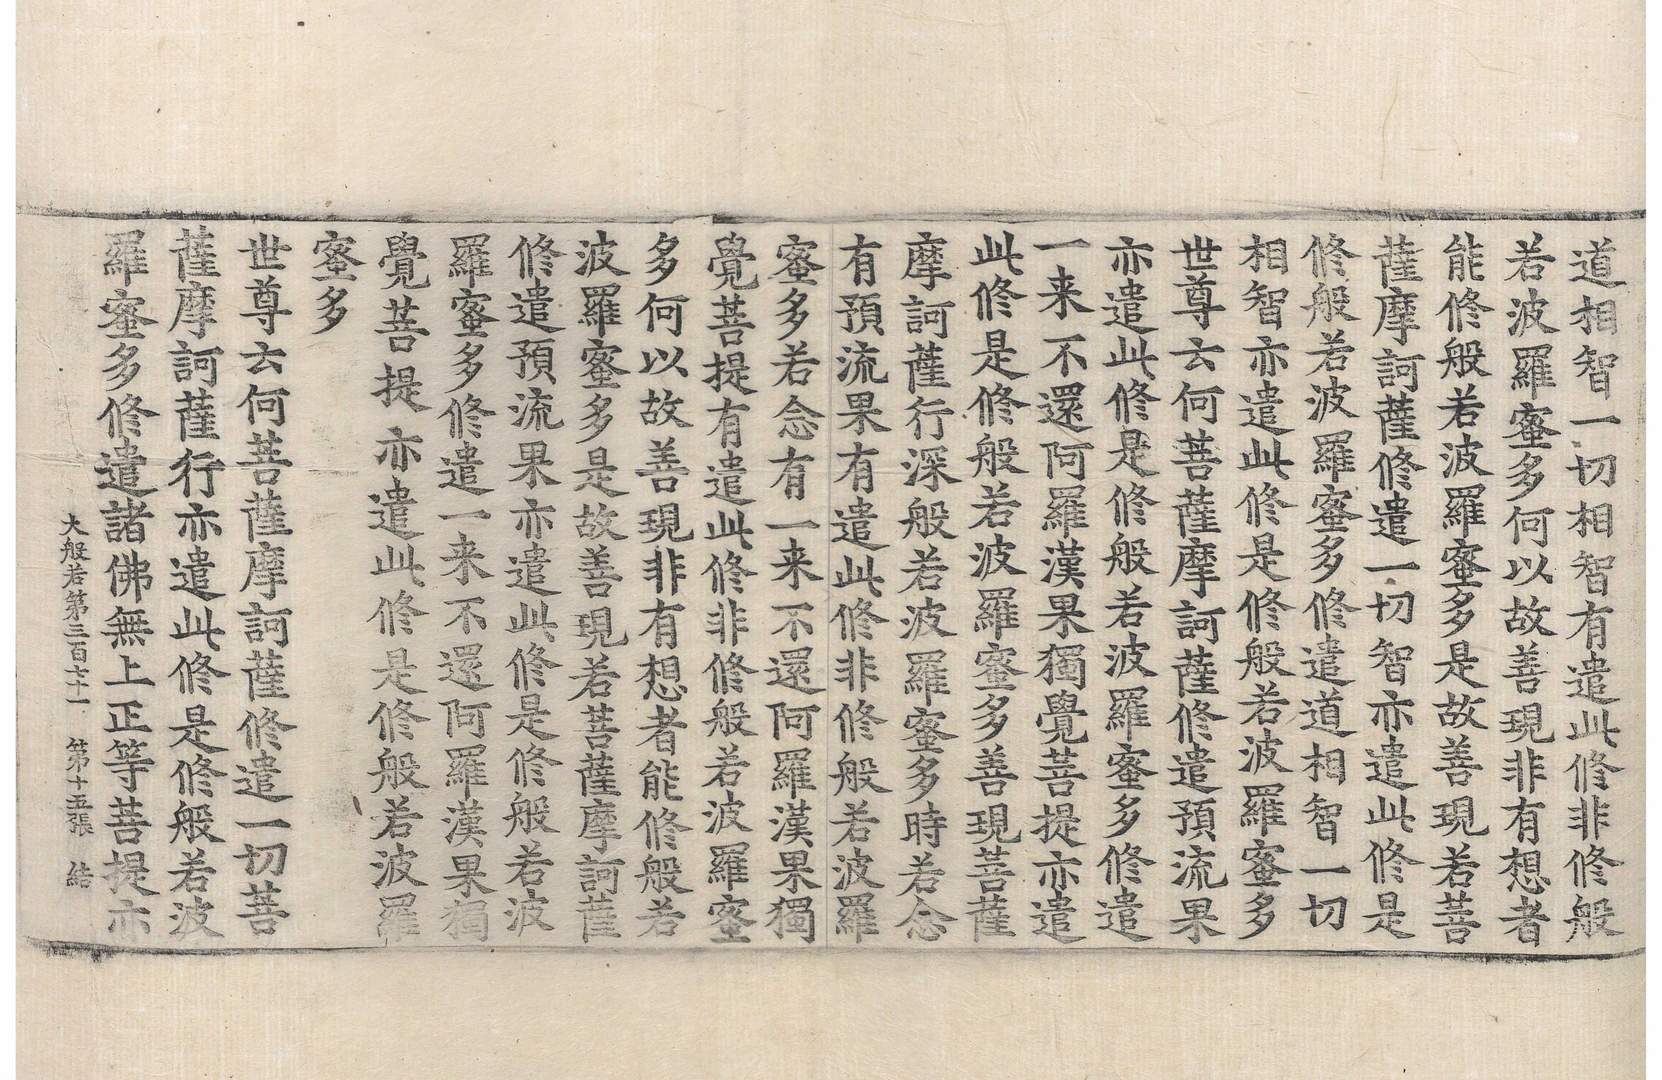 道相智一切相智有遣此修非修般
若波羅蜜多何以故善現非有想者
能修般若波羅蜜多是故善現若菩
薩摩訶薩修遣一切智亦遣此修是
修般若波羅蜜多修遣道相智一切
相智亦遣此修是修般若波羅蜜多
世尊云何菩薩摩訶薩修遣預流果
亦遣此修是修般若波羅蜜多修遣
一来不還阿羅漢果獨覺菩提亦遣
此修是修般若波羅蜜多善現菩薩
摩訶薩行深般若波羅蜜多時若念
有預流果有遣此修非修般若波羅
蜜多若念有一来不還阿羅漢果獨
覺菩提有遣此修非修般若波羅蜜
多何以故善現非有想者能修般若
波羅蜜多是故善現若菩薩摩訶薩
修遣預流果亦遣此修是修般若波
羅蜜多修遣一来不還阿羅漢果獨
覺菩提亦遣此修是修般若波羅
蜜多
世尊云何菩薩摩訶薩修遣一切菩
薩摩訶薩行亦遣此修是修般若波
羅蜜多修遣諸佛無上正等菩提亦
大般若第三百七十一 第十五張 結